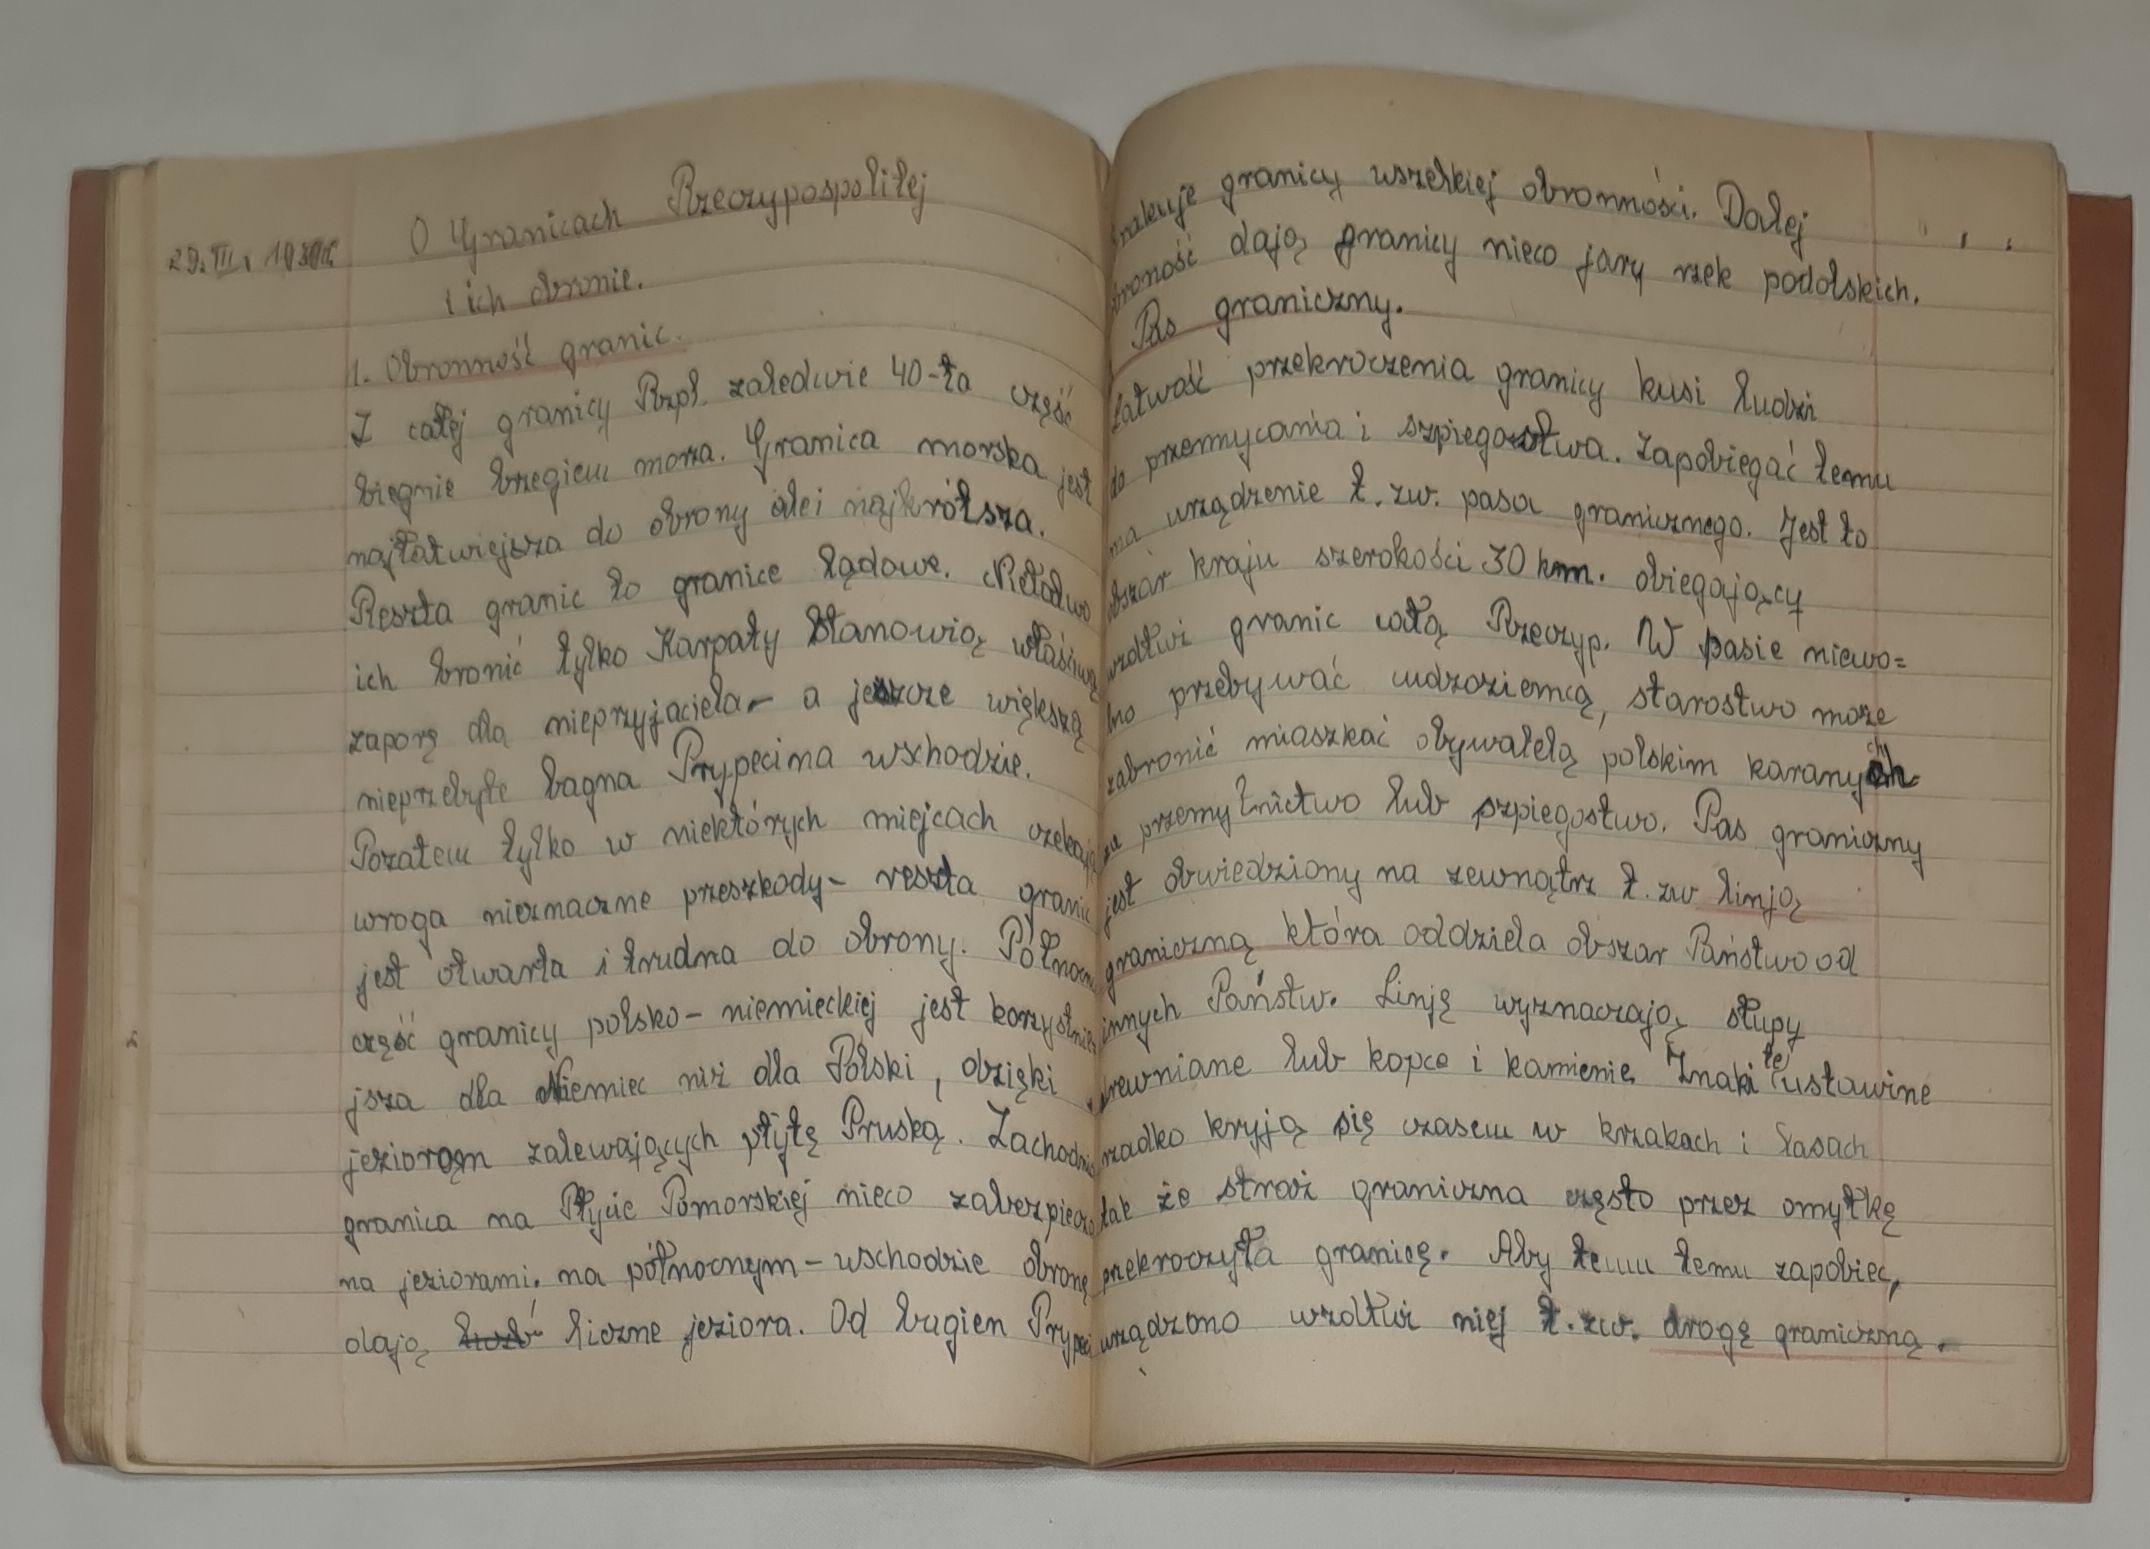 O Granicach Rzeczypospolitej
29. III.
i ich obronie.
1. Obronność granic.
Z całej granicy Rzpl. zaledwie 40-ta część
biegnie brzegiem morza. Granica morska jest
najłatwiejsza do obrony alei najkrótsza.
Reszta granic to granice lądowe. Niełatwo
ich bronić tylko Karpaty stanowią właściwą
zaporę dla nieprzyjaciela - a jeszcze większą
nieprzebyte bagna Prypeci na wschodzie.
Pozatem tylko w niektórych miejcach czekają
wroga nieznaczne przeszkody - reszta granic
jest otwarta i trudna do obrony. Północna
część granicy polsko - niemieckiej jest korzystnie
jsza dla Niemiec niż dla Polski, dzięki
jeziorom zalewających płytę Pruską. Zachodnia
granica na Płycie Pomorskiej nieco zabezpieczo
na jeziorami. na północnym - wschodzie obronę
dają liczne jeziora. Od bagien Prypeci
brakuje granicy wszelkiej obronności. Dalej
obroność dają granicy nieco jary rzek podolskich.
Pas graniczny.
Łatwość przekroczenia granicy kusi ludzi
do przemycania i szpiegostwa. Zapobiegać temu
ma urządzenie t. zw. pasa granicznego. Jest to
obszar kraju szerokości 30 km. obiegający
wzdłuż granic całą Rzeczyp. W pasie niewo=
lno przebywać cudzoziemcą, starostwo może
zabronić miaszkać obywatelą polskim karanych
za przemytnictwo lub szpiegostwo. Pas graniczny
jest obwiedziony na zewnątrz t. zw linją
graniczną która oddziela obszar Państwo od
innych Państw. Linję wyznaczają słupy
drewniane lub kopce i kamienie. Znaki te ustawine
rzadko kryją się czasem w krzakach i lasach
tak że straż graniczna często przez omyłkę
przekroczyła granicę. Aby temu temu zapobiec,
urządzono wzdłuż niej t. zw. drogę graniczną.